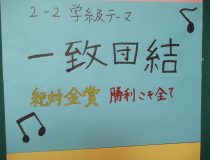 2-2 学級テーマ
一致団結
絶対金賞 勝利こそ全て